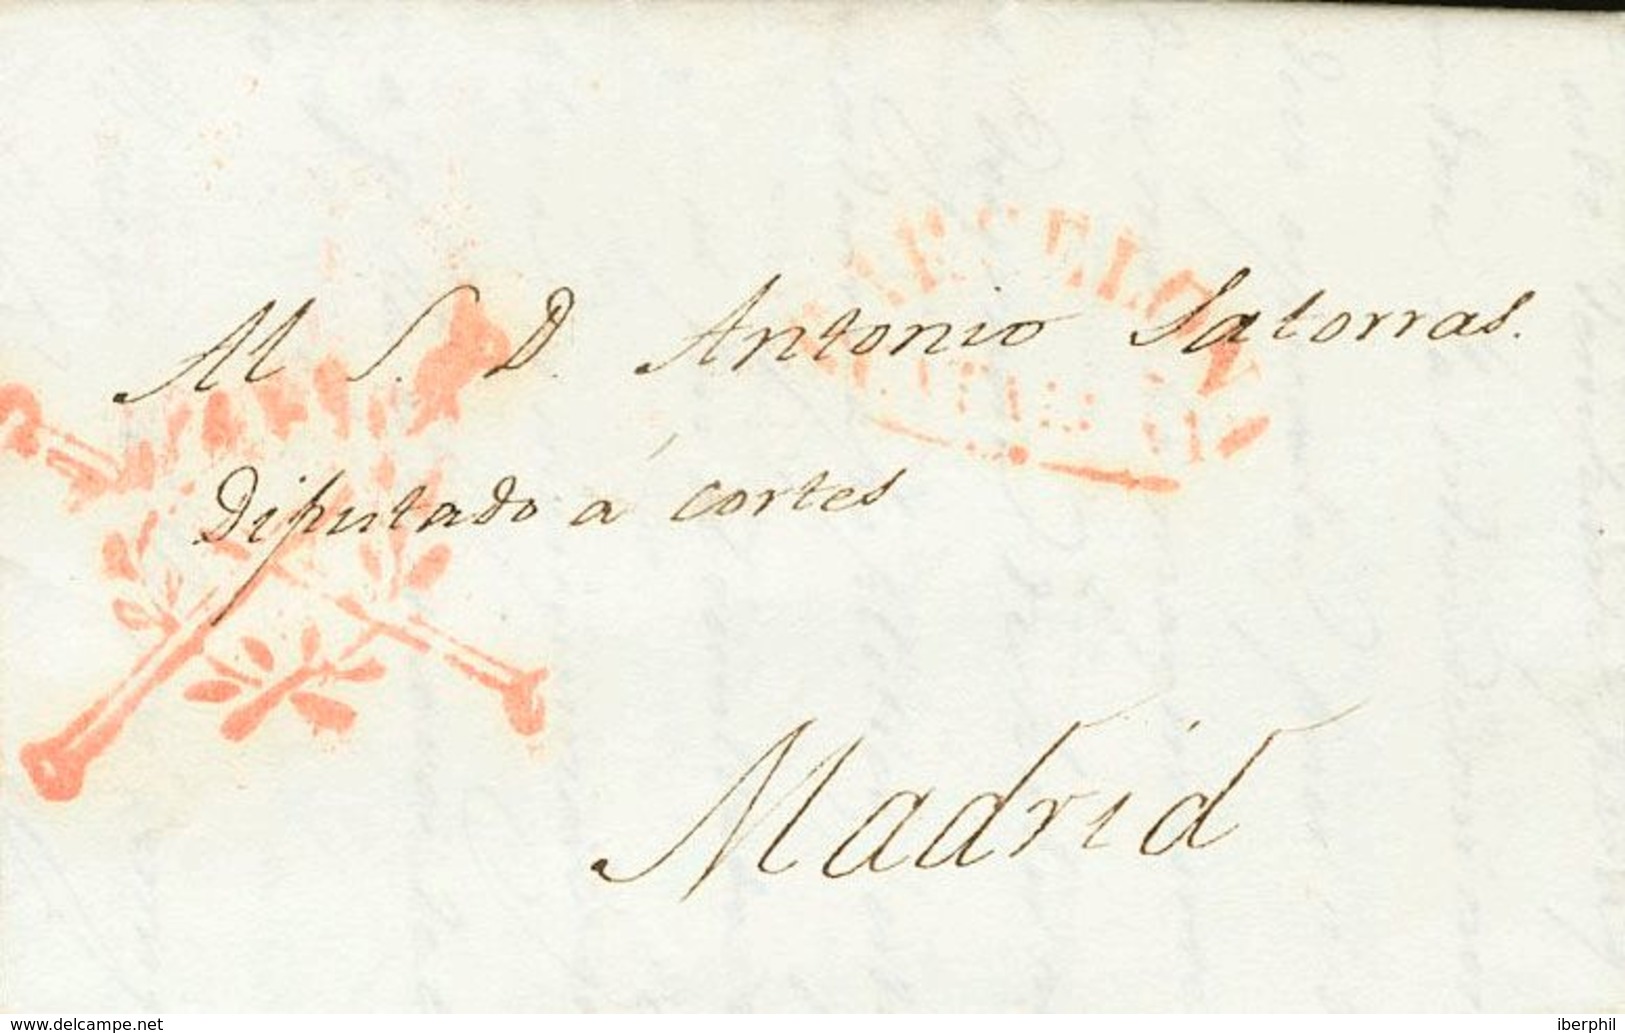 BARCELONA
CATALUÑA
Al S. D. Antonio Satorras.
Diputado á cortes
Madrid
www.delcampe.net
iberphil